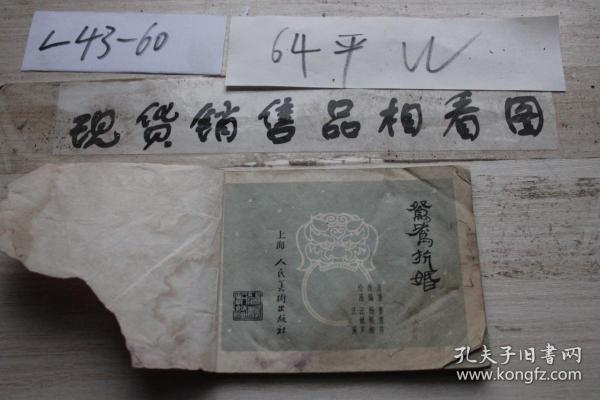 L43-60
64平 W
现货销售品相看图
鸳鸯抗婚
上海人民美術出版社
原著
改编
绘画
孔夫子旧書网
www.kongfz.com